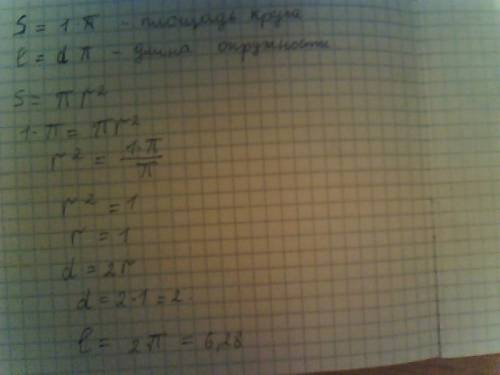 S = 1π - площадь круга
l = dπ - длина окружности
S = πr²
1·π = πr²
r² = 1·π/π
r² = 1
r = 1
d = 2r
d = 2·1 = 2
l = 2π = 6,28